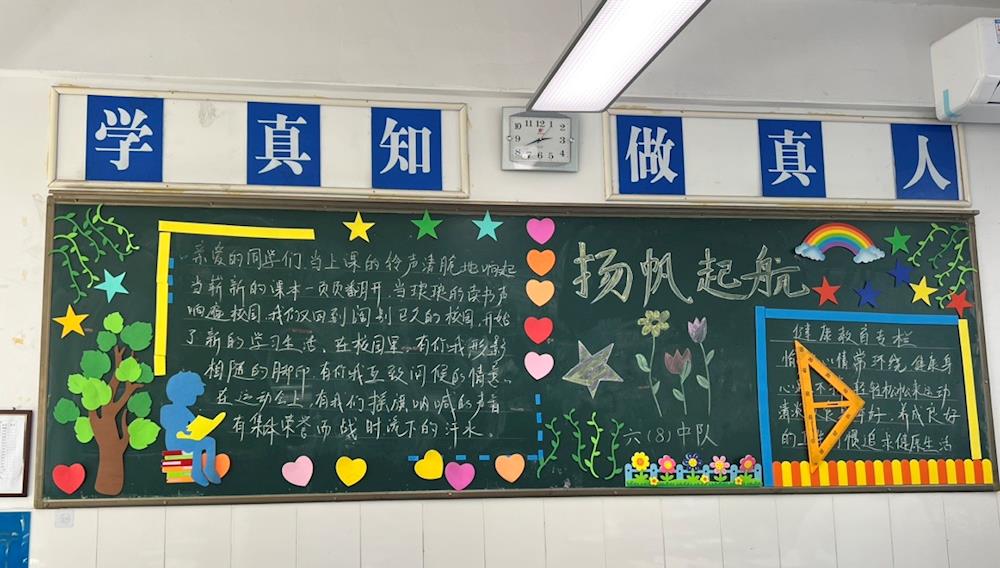 学真知
做真人
亲爱的同学们,当上课的铃声清脆地响起
当崭新的课本一页页翻开,当琅琅的读书声
响彻校园,我们又回到阔别已久的校园,开始
了新的学习生活。在校园里,有你我形影
相随的脚印,有你我互致问候的情意。
在运动会上,有我们摇旗呐喊的声音
有集体荣誉而战时流下的汗水。
扬帆起航
六(8)中队
健康教育专栏
情常环绕,健康身
轻轻松松来运动
养成良好
的 惯追求健康生活